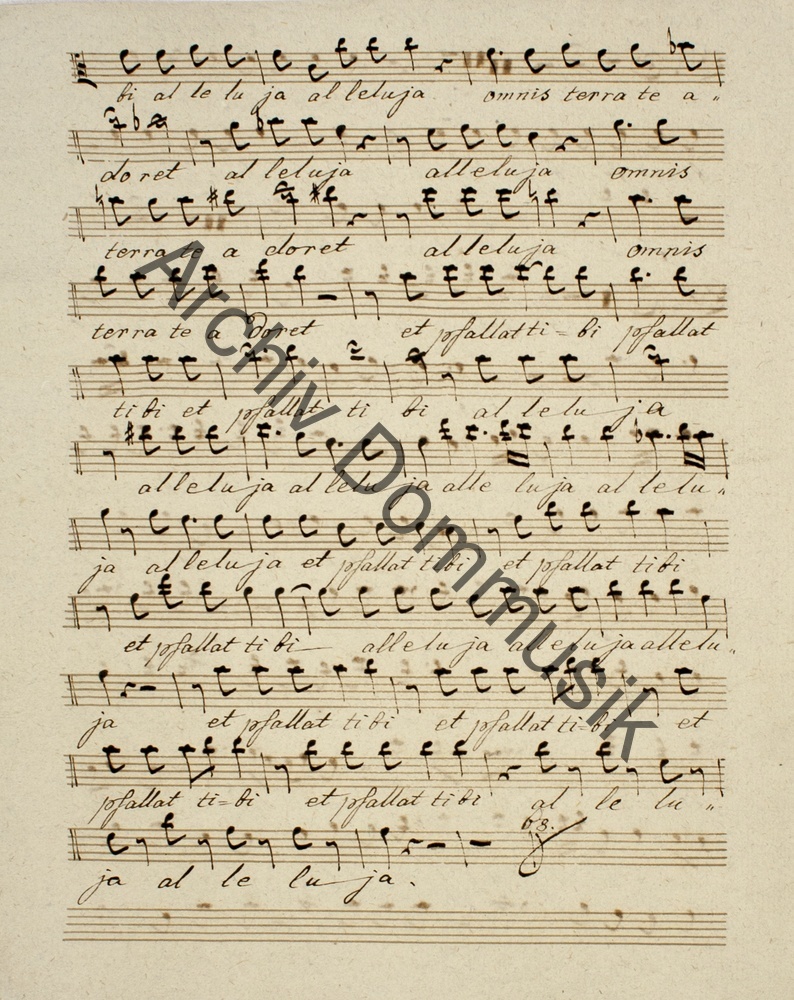 bi al le lu ja al leluja omnis terra te a„
do ret al leluja alleluja omnis
terra te a doret al leluja omnis
terra te a doret et psallat ti=bi psallat
tibi et psallat ti bi al le lu ja
alleluja al lelu ja alle lu ja al le lu„
ja al leluja et psallat tibi et psallat tibi
et psallat ti bi alleluja alleluja allelu„
ja et psallat tibi et psallat ti=bi et
psallat ti=bi et psallat tibi al le lu„
ja al le lu ja.
63.
Archiv Dommusik